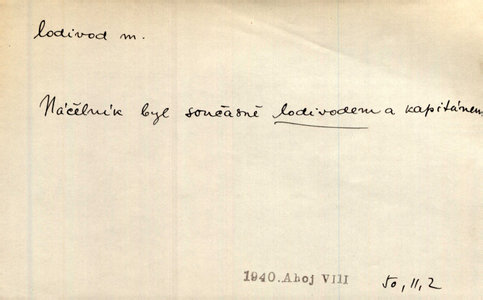 lodivod m.
Náčelník byl současně lodivodem a kapitánem
1940. Ahoj VIII
50, 11, 2